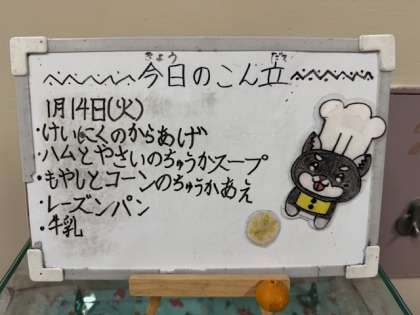 きょう だて
今日のこん立
1月14日(火)
・けいにくのからあげ
・ハムとやさいのちゅうかスープ
・もやしとコーンのちゅうかあえ
・レーズンパン
・牛乳